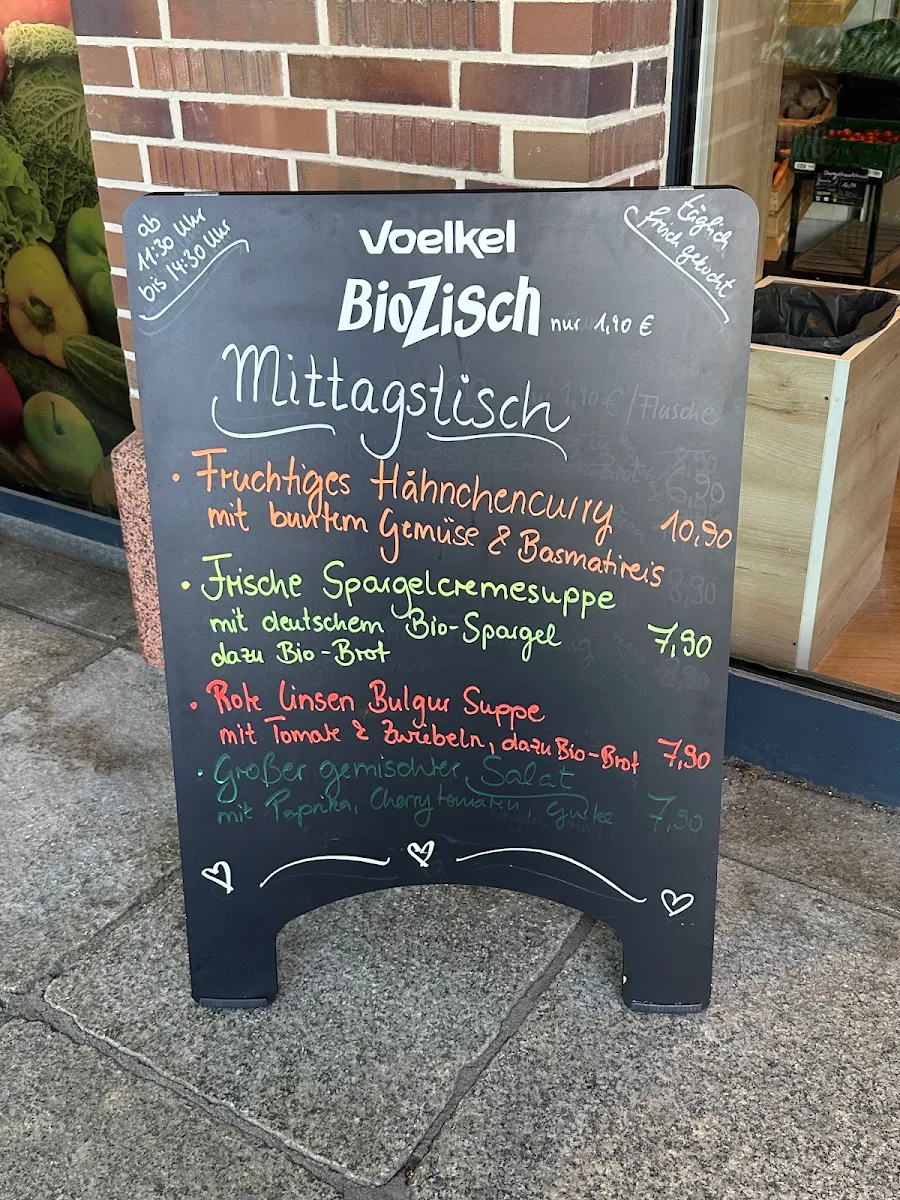 ab
11:30 Uhr
bis 14:30 Uhr
täglich
frisch gekocht
Voelkel
BioZisch nur 1,90 €
Mittagstisch
1,90 €/Flasche
• Fruchtiges Hähnchencurry
mit buntem Gemüse & Basmatireis 10,90
• Frische Spargelcremesuppe
mit deutschem Bio-Spargel 7,90
dazu Bio-Brot
• Rote Linsen Bulgur Suppe
mit Tomate & Zwiebeln, dazu Bio-Brot 7,90
• Großer gemischter Salat
mit Paprika, Cherrytomaten, Gurke 7,90